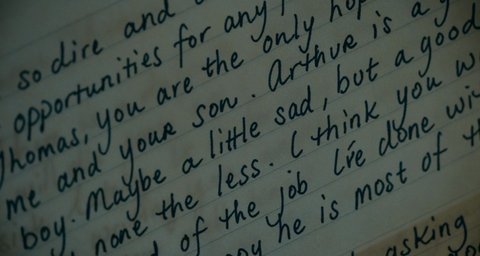 so dire and
opportunities for any
Thomas, you are the only hop
me and your son. Arthur is a g
boy. Maybe a little sad, but a good
none the less. I think you w
of the job I've done wi
he is most of t
asking